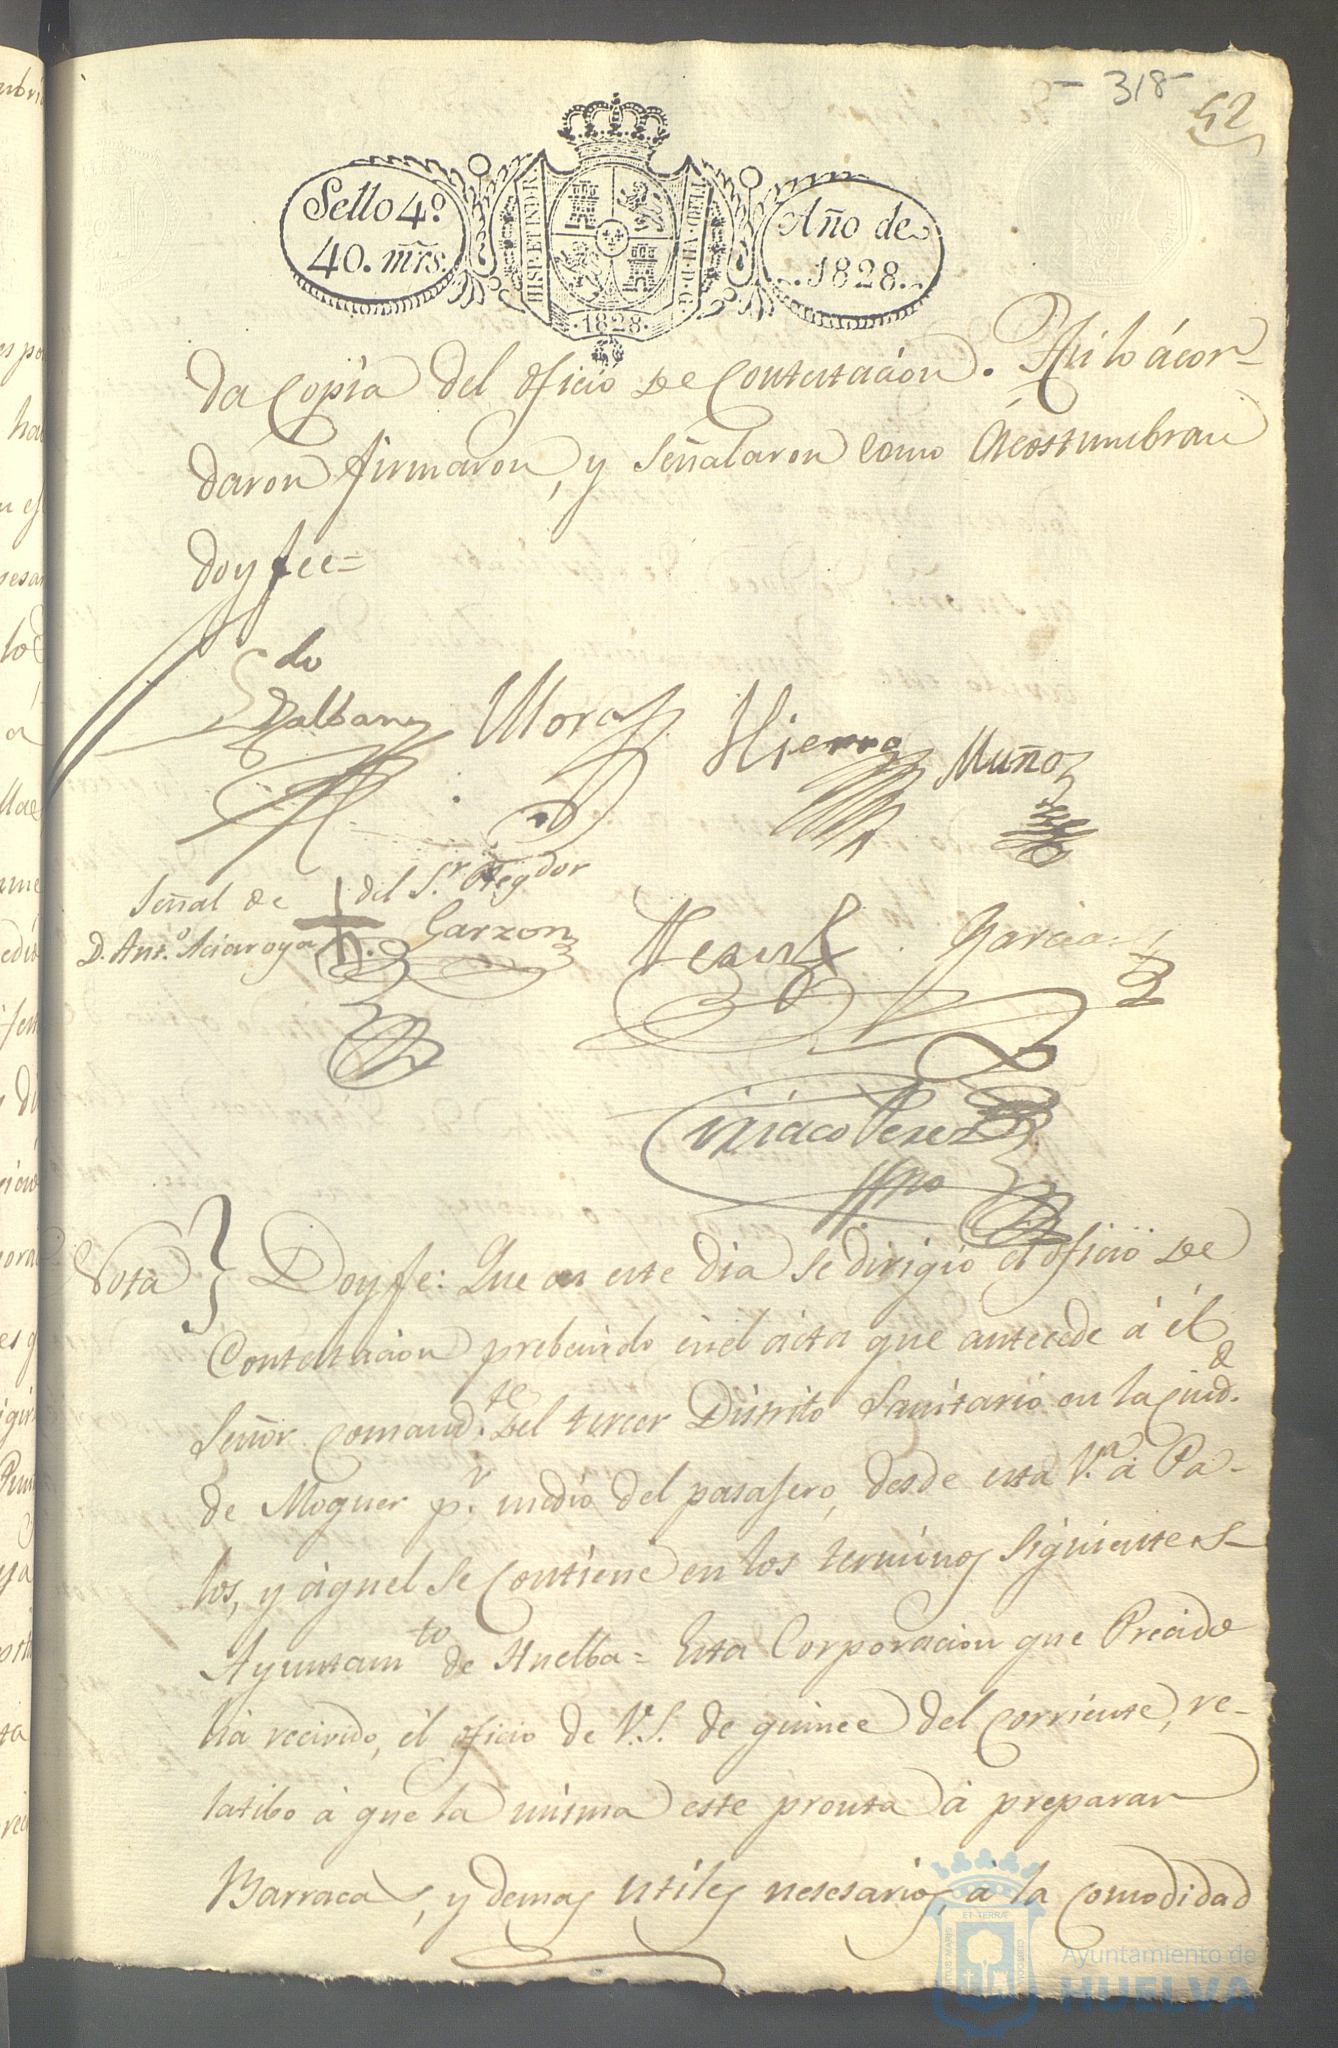 - 318 -
52
Sello 4º
40. mrs.
HISP. ET IND. R.
FERD. VII. D. G.
·1828·
Año de
1828.
da copia del oficio de Contestacion. Asi lo ácor-
daron firmaron, y señalaron como Acostumbran
doy fee=
Ldo
Balbany
Mora
Hierro
Muñoz
Señal de del Sr. Regdor
D. Anto. Garzon
Garcia
Ciriaco Perez
ssno
Nota } Doyfe: Que en este dia se dirigio el oficio de
Contestacion prebenido en el acta que antecede á él
Señor Comandte. del tercer Distrito Sanitario en la Ciudd.
de Moguer pr. medio del pasagero, desde esta Va. á Pa-
los, y áquel se Contiene en los terminos siguientes-
Ayuntamto de Huelba= Esta Corporacion que Precido
há recivido, él oficio de V.S. de quince del corriente, re-
latibo á que la misma este pronta á preparar
Barraca, y demas utiles nesesarios, á la comodidad
Ayuntamiento de
HUELVA